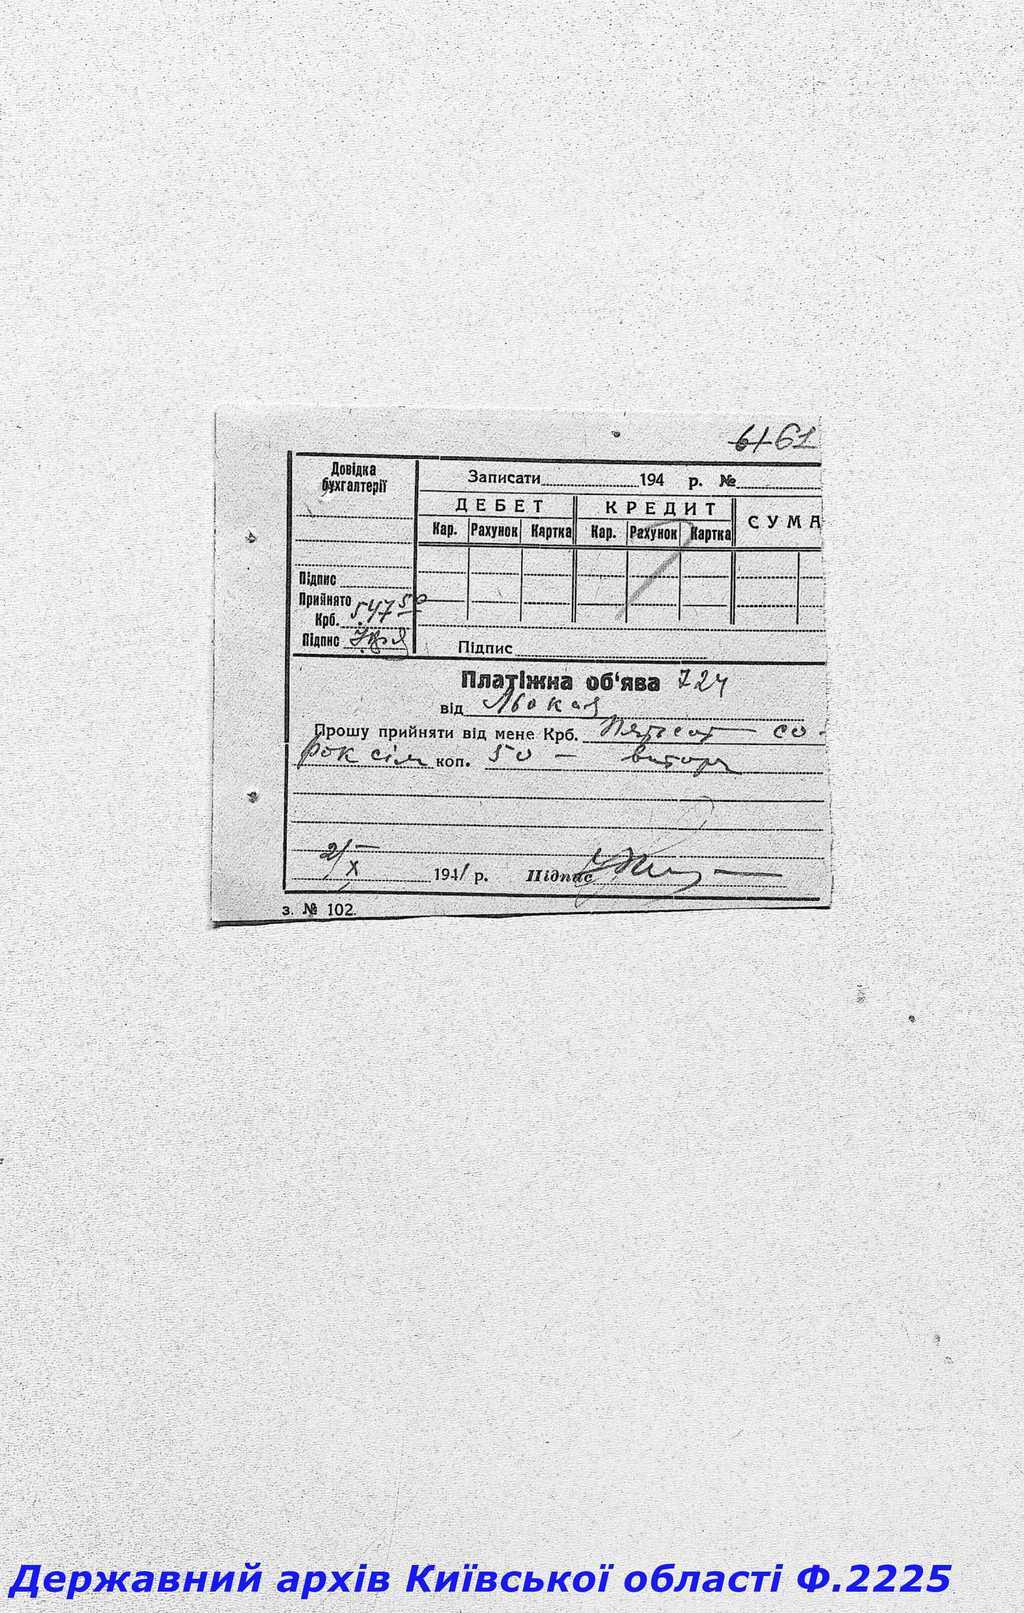 61 61
Довідка бухгалтерії
Записати 194 р. №
ДЕБЕТ КРЕДИТ СУМА
Кар. Рахунок Картка Кар. Рахунок Картка
Підпис
Прийнято
Крб. 547 50
Підпис
Підпис
Платіжна об'ява 724
від
Прошу прийняти від мене Крб. Пятьсот со-
рок сім коп. 50 –
2/X 1941 р. Підпис
з. № 102.
Державний архів Київської області Ф.2225